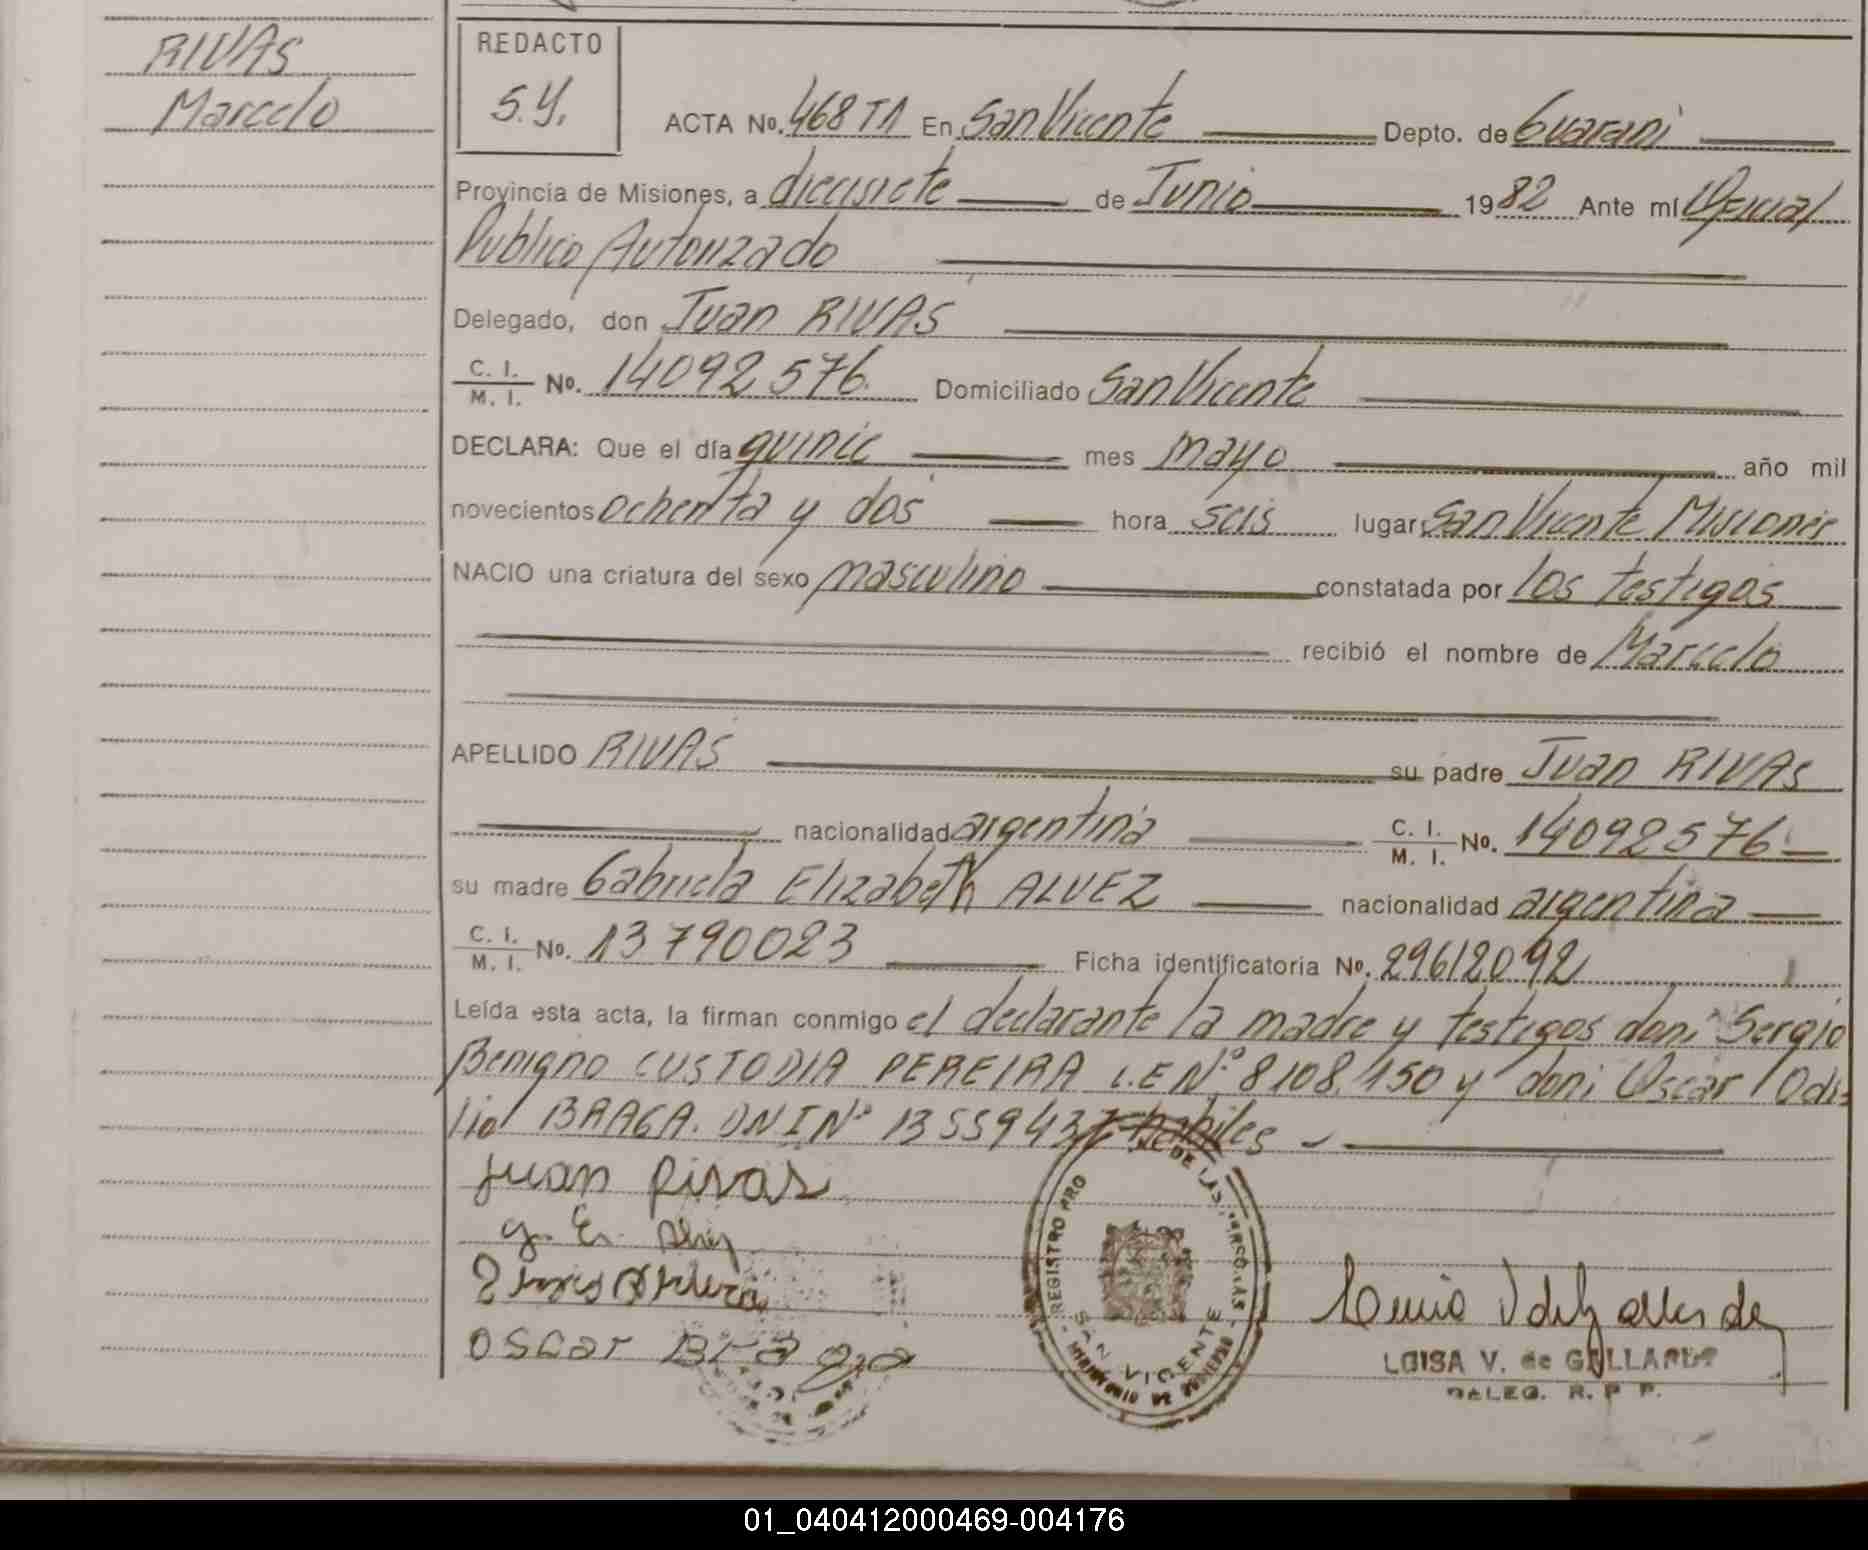 RIVAS
Marcelo
REDACTO
S.Y.
ACTA No. 468 TA En San Vicente Depto. de Guarani
Provincia de Misiones, a diecisiete de Junio 1982 Ante mí Oficial
Publico Autorizado
Delegado, don Juan RIVAS
C. I. / M. I. No. 14092576. Domiciliado San Vicente
DECLARA: Que el día quinic mes mayo año mil
novecientos ochenta y dos hora seis lugar San Vicente Misiones
NACIO una criatura del sexo masculino constatada por los testigos
recibió el nombre de Marcelo
APELLIDO RIVAS su padre Juan RIVAS
nacionalidad argentina C. I. / M. I. No. 14092576
su madre Gabriela Elizabeth ALVEZ nacionalidad argentina
C. I. / M. I. No. 13790023 Ficha identificatoria No. 29612092
Leída esta acta, la firman conmigo el declarante la madre y testigos don: Sergio
Benigno CUSTODIA PEREIRA L.E Nº 8108.150 y don: Oscar Odi-
lio BRAGA. DNI Nº 13559437 habiles
Juan Rivas
G. E. Alvez
Oscar Braga
REGISTRO PRO DE LAS PERSONAS
SAN VICENTE
MINISTERIO DE GOBIERNO
LUISA V. de GALLARDO
DELEG. R. P. P.
01_040412000469-004176